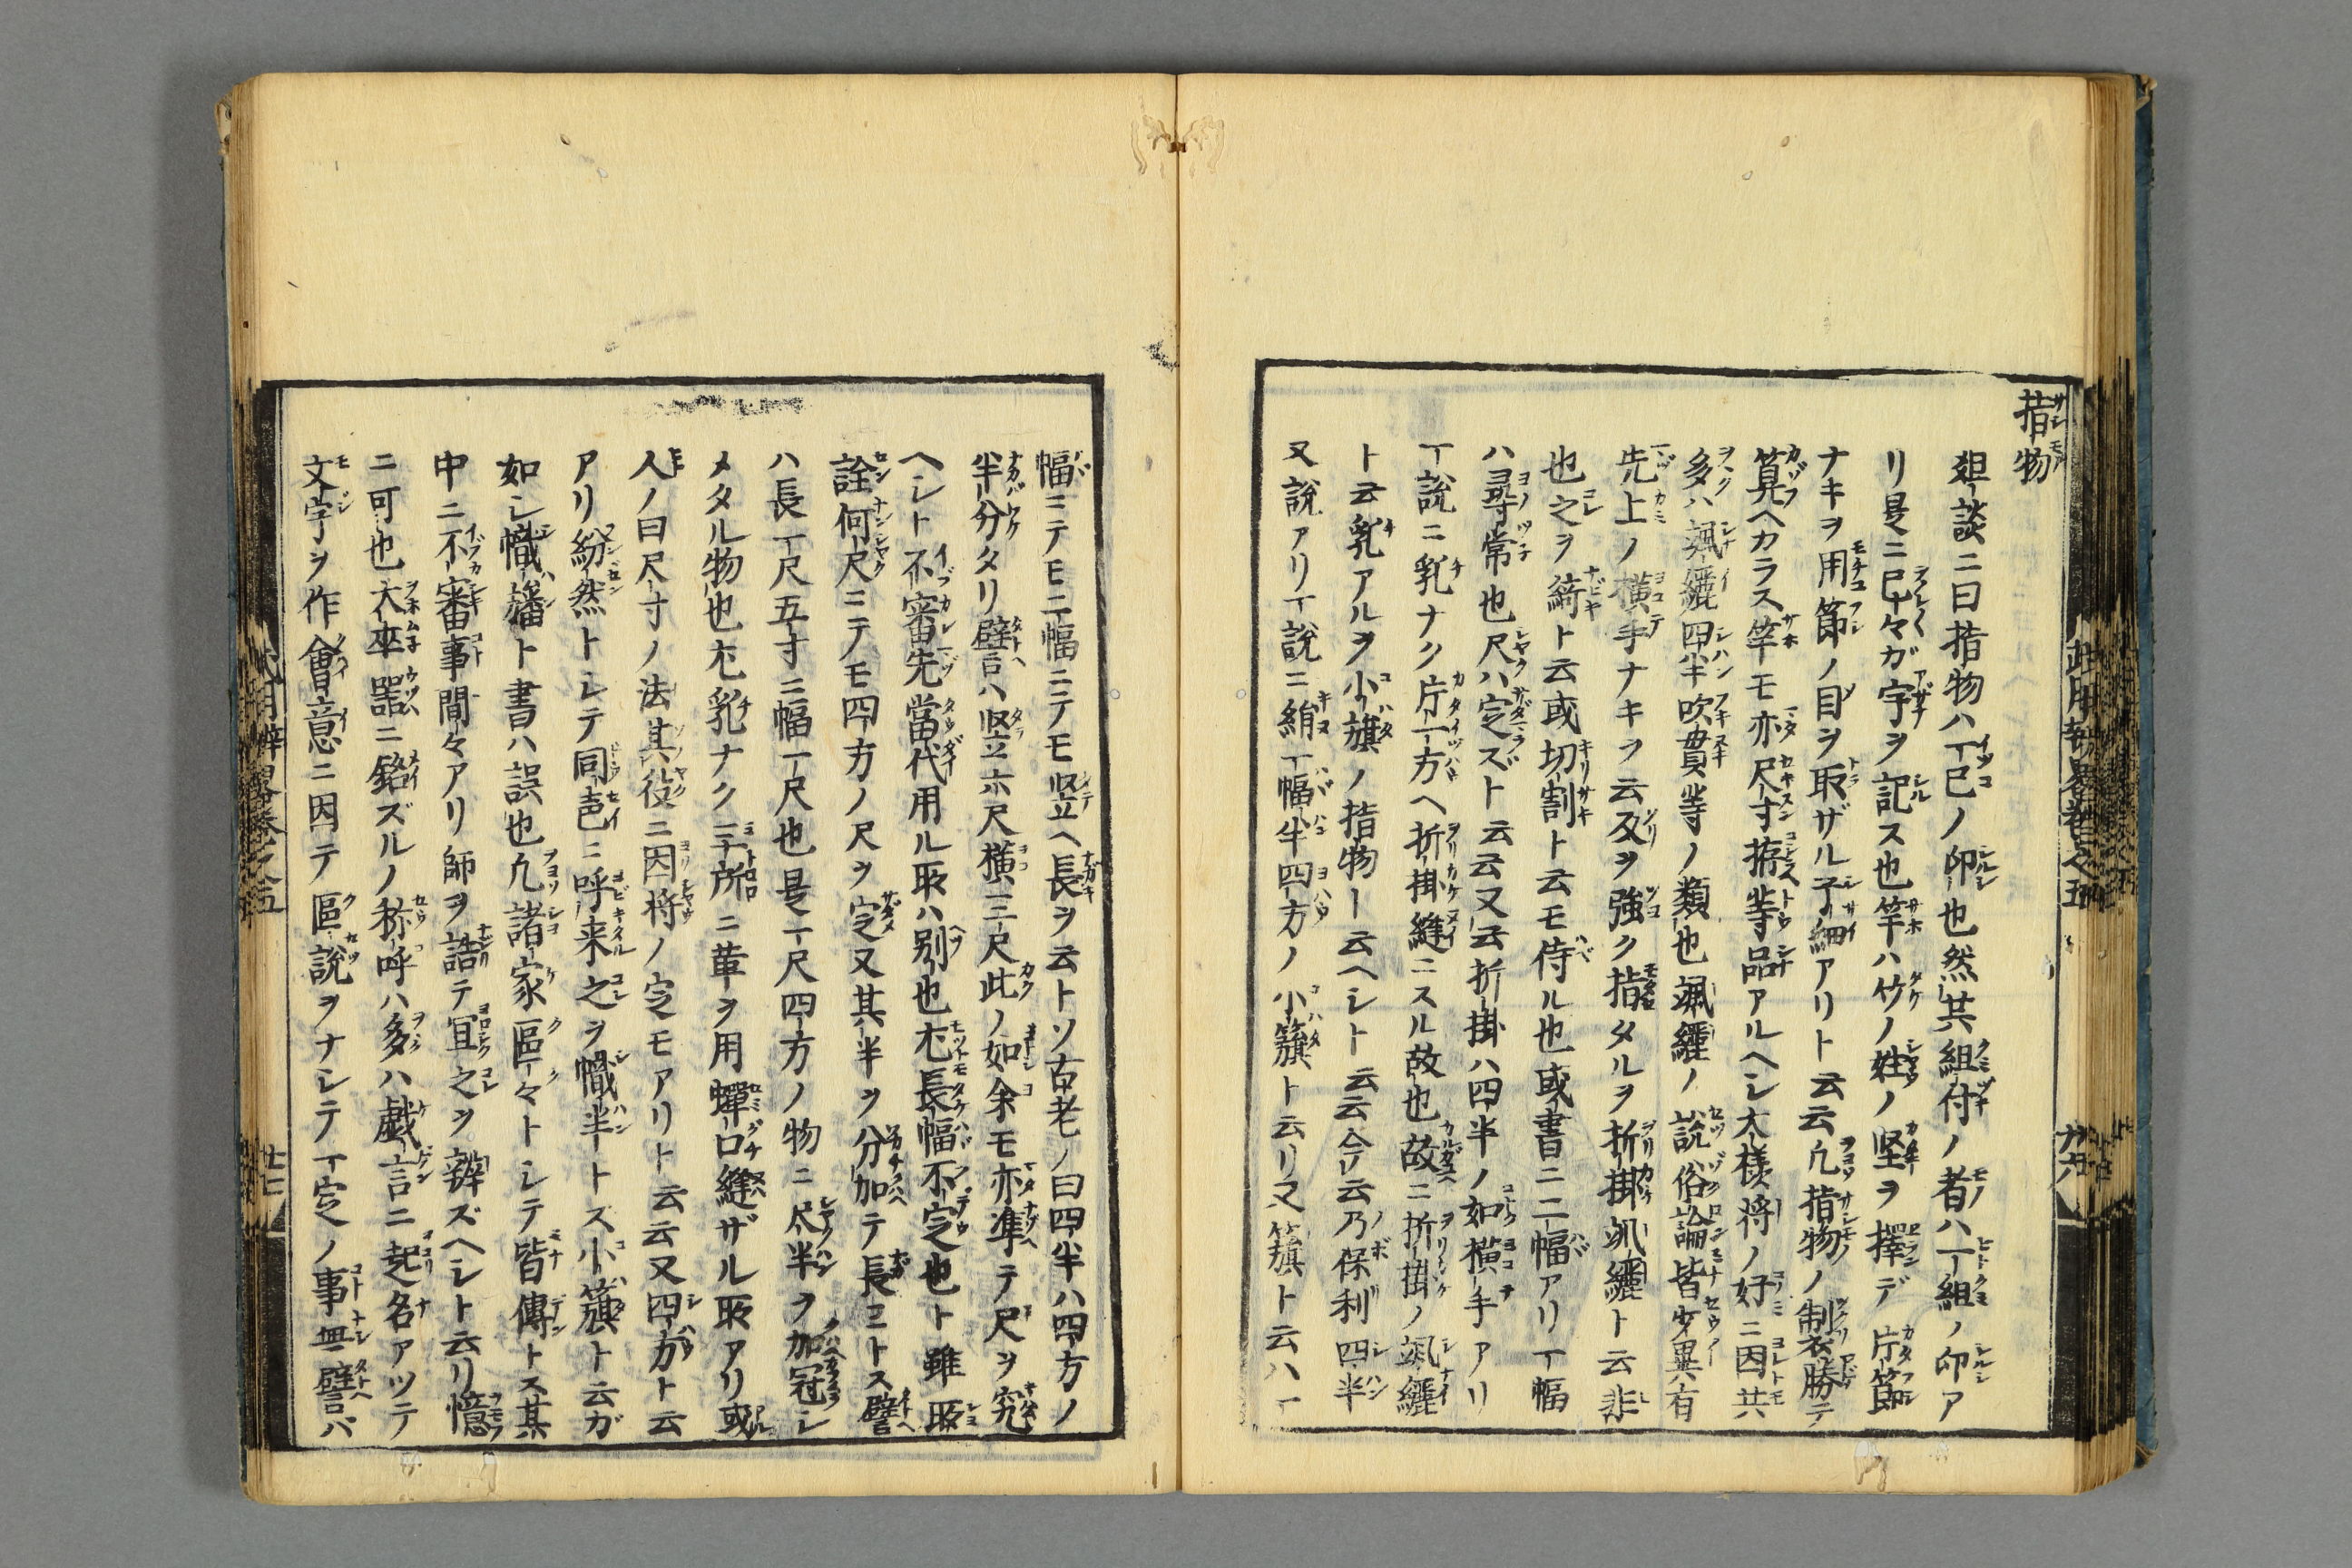 指物
俎談ニ曰指物ハ一已ノ印也然共組付ノ者ハ一組ノ印ア
リ是ニ已々ガ字ヲ記ス也竿ハ竹ノ性ノ堅ヲ擇デ片節
ナキヲ用節ノ目ヲ取ザル子細アリト云云凢指物ノ制衣勝テ
算ヘカラス竿モ亦尺寸拵等品アルヘシ大様将ノ好ニ因共
多ハ颯纒四半吹貫等ノ類也颯纒ノ説俗論皆少異有
先上ノ横手ナキヲ云及ヲ強ク指タルヲ折掛颯纒ト云非
也之ヲ綺ト云或切割ト云モ侍ル也或書ニ二幅アリ一幅
ハ尋常也尺ハ定ズト云云又云折掛ハ四半ノ如横手アリ
一説ニ乳ナク片一方ヘ折掛縫ニスル故也故ニ折掛ノ颯纒
ト云乳アルヲ小旗ノ指物ト云ヘシト云云今云乃保利四半
又説アリ一説ニ絹一幅半四方ノ小籏ト云リ又籏ト云ハ一
幅ニテモ二幅ニテモ竪ヘ長ヲ云トソ古老ノ曰四半ハ四方ノ
半分タリ譬ハ竪立六尺横三尺此ノ如余モ亦準テ尺ヲ究
ヘシト不審先當代用ル取ハ別也尤長幅不定也ト雖取
詮何尺ニテモ四方ノ尺ヲ定又其半ヲ分加テ長ニトス譬
ハ長一尺五寸ニ幅一尺也是一尺四方ノ物ニ尽半ヲ加冠シ
メタル物也尤乳ナク三所ニ革ヲ用蟬口縫ザル取アリ或
人ノ曰尺寸ノ法其役ニ因将ノ定モアリト云云又四方ト云
アリ紛然トシテ同声ニ呼来之ヲ幟半トス小籏ト云ガ
如シ幟旛ト書ハ誤也凢諸家區々トシテ皆傳トス其
中ニ不審事間々アリ師ヲ詰テ宜之ヲ辨ズヘシト云リ憶
ニ可也大卒器ニ銘ズルノ称呼ハ多ハ戯言ニ起名アツテ
文字ヲ作會意ニ因テ區説ヲナシテ一定ノ事無譬ハ